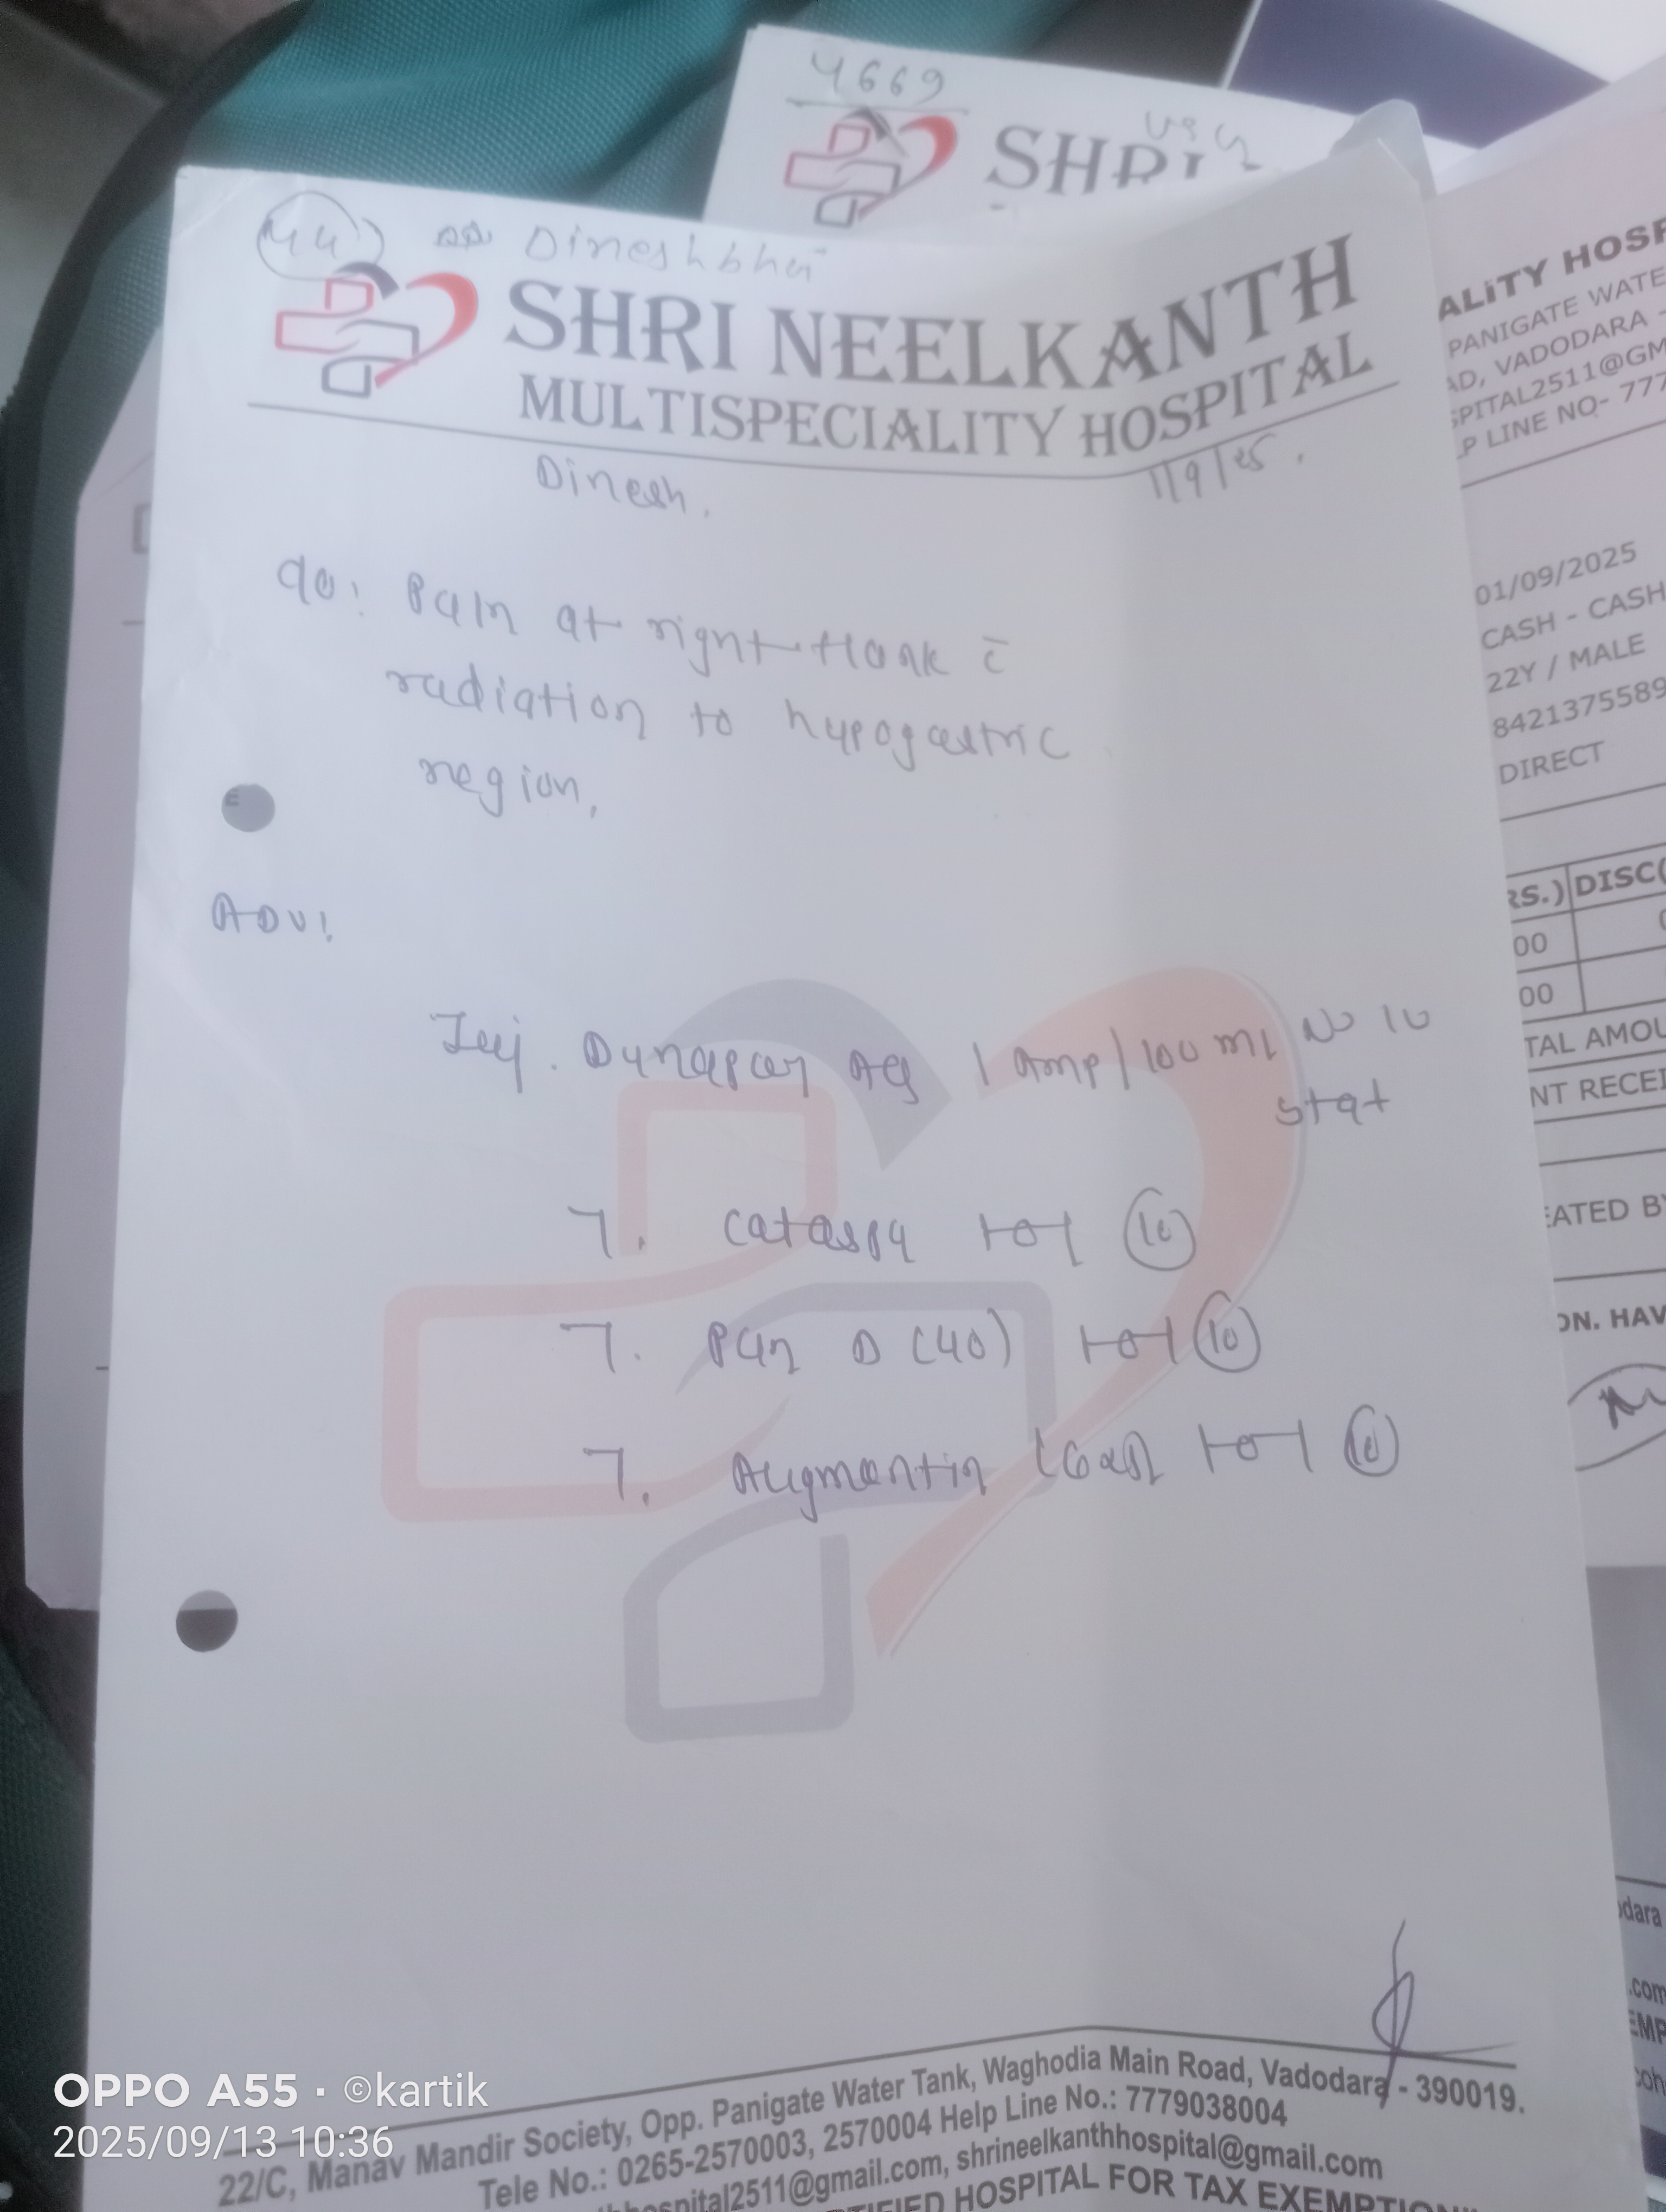 4669
SHRI
44
Dineshbhai
SHRI NEELKANTH
MULTISPECIALITY HOSPITAL
Dinesh.
1/9/25.
c/o: Pain at right flank c̄
radiation to hypogastric
region,
Adv:
Inj. Dynapar AQ 1 Amp/100 ml NS IV
stat
T. Cataspa 1-0-1 (10)
T. Pan D (40) 1-0-1 (10)
T. Augmentin (625) 1-0-1 (10)
22/C, Manav Mandir Society, Opp. Panigate Water Tank, Waghodia Main Road, Vadodara - 390019.
Tele No.: 0265-2570003, 2570004 Help Line No.: 7779038004
hospital2511@gmail.com, shrineelkanthhospital@gmail.com
TIFIED HOSPITAL FOR TAX EXEMPTION
ALiTY HOSP
PANIGATE WATE
AD, VADODARA -
SPITAL2511@GM
P LINE NO- 777
01/09/2025
CASH - CASH
22Y / MALE
8421375589
DIRECT
RS.) DISC(
00
00
TAL AMOU
NT RECEI
EATED BY
ON. HAV
dara
.com
EMP
OPPO A55 · ©kartik
2025/09/13 10:36